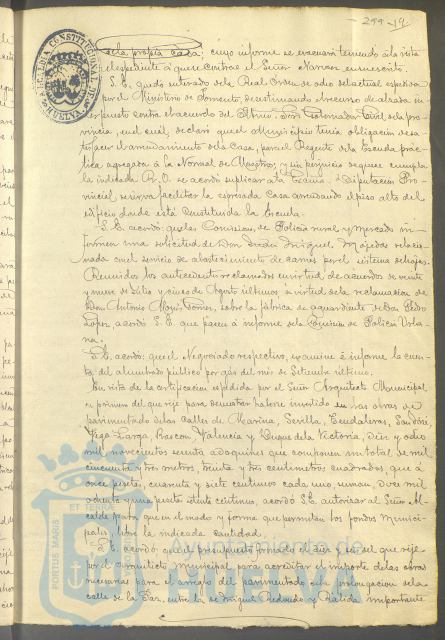 299-14
de la propia casa, cuyo informe se evacuará teniendo á la vista
el expediente á que se contrae el Señor Narvaez en su escrito.
S.E. quedó enterado de la Real Orden de ocho del actual espedida
por el Ministerio de Fomento, desestimando el recurso de alzada in-
terpuesto contra el acuerdo del Iltmo. Señor Gobernador Civil de la pro-
vincia, en el cual, declaró que el Municipio tenía obligación de sa-
tisfacer el arrendamiento de la Casa, para el Regente de la Escuela prác-
tica agregada á la Normal de Maestros, y sin perjuicio de que se cumpla
la indicada R.O. se acordó suplicar á la Excma. Diputación Pro-
vincial, se sirva facilitar la espresada casa arrendando el piso alto del
edificio donde está constituida la Escuela.
S.E. acordó: que las Comisiones de Policía rural y Mercado in-
formen una solicitud de Don Miguel Majadas relacio-
nada con el servicio de abastecimiento de carnes por el sistema de
Reunidos los antecedentes reclamados en virtud de acuerdos de veinte
y nueve de Julio y cinco de Agosto últimos á virtud de la reclamación de
Don Antonio Torres, sobre la fábrica de aguardiente de Don Pedro
López, acordó S.E. que pasen á informe de la Comisión de Policía Urba-
na.
S.E. acordó: que el Negociado respectivo, examine é informe la cuen-
ta del alumbrado público por gas del mes de Setiembre último.
En vista de la certificación espedida por el Señor Arquitecto Municipal
en primero del que rije para demostrar haberse invertido en las obras de
pavimentado de las calles de Marina, Sevilla, Tendaleras, San José,
Vega-Larga, Rascon, Valencia y Duque de la Victoria, diez y ocho
mil novecientos serenta adoquines que componen un total de mil
cincuenta y tres metros, treinta y tres centímetros cuadrados, que á
once pesetas, cuarenta y siete céntimos cada uno, suman, doce mil
ochenta y una peseta setenta céntimos, acordó S.E. autorizar al Señor Al-
calde para que en el modo y forma que permitan los fondos munici-
pales, libre la indicada cantidad.
S.E. acordó: que el presupuesto formado el diez y seis del que rije
por el Arquitecto Municipal para acreditar el importe de las obras
necesarias para el arreglo del pavimentado en la prolongación de la
calle de la Paz, entre la de Miguel Redondo y Rábida, importante
ALCALDIA CONSTITUCIONAL DE HUELVA
PORTUS MARIS ET TERRÆ
Ayuntamiento de
HUELVA